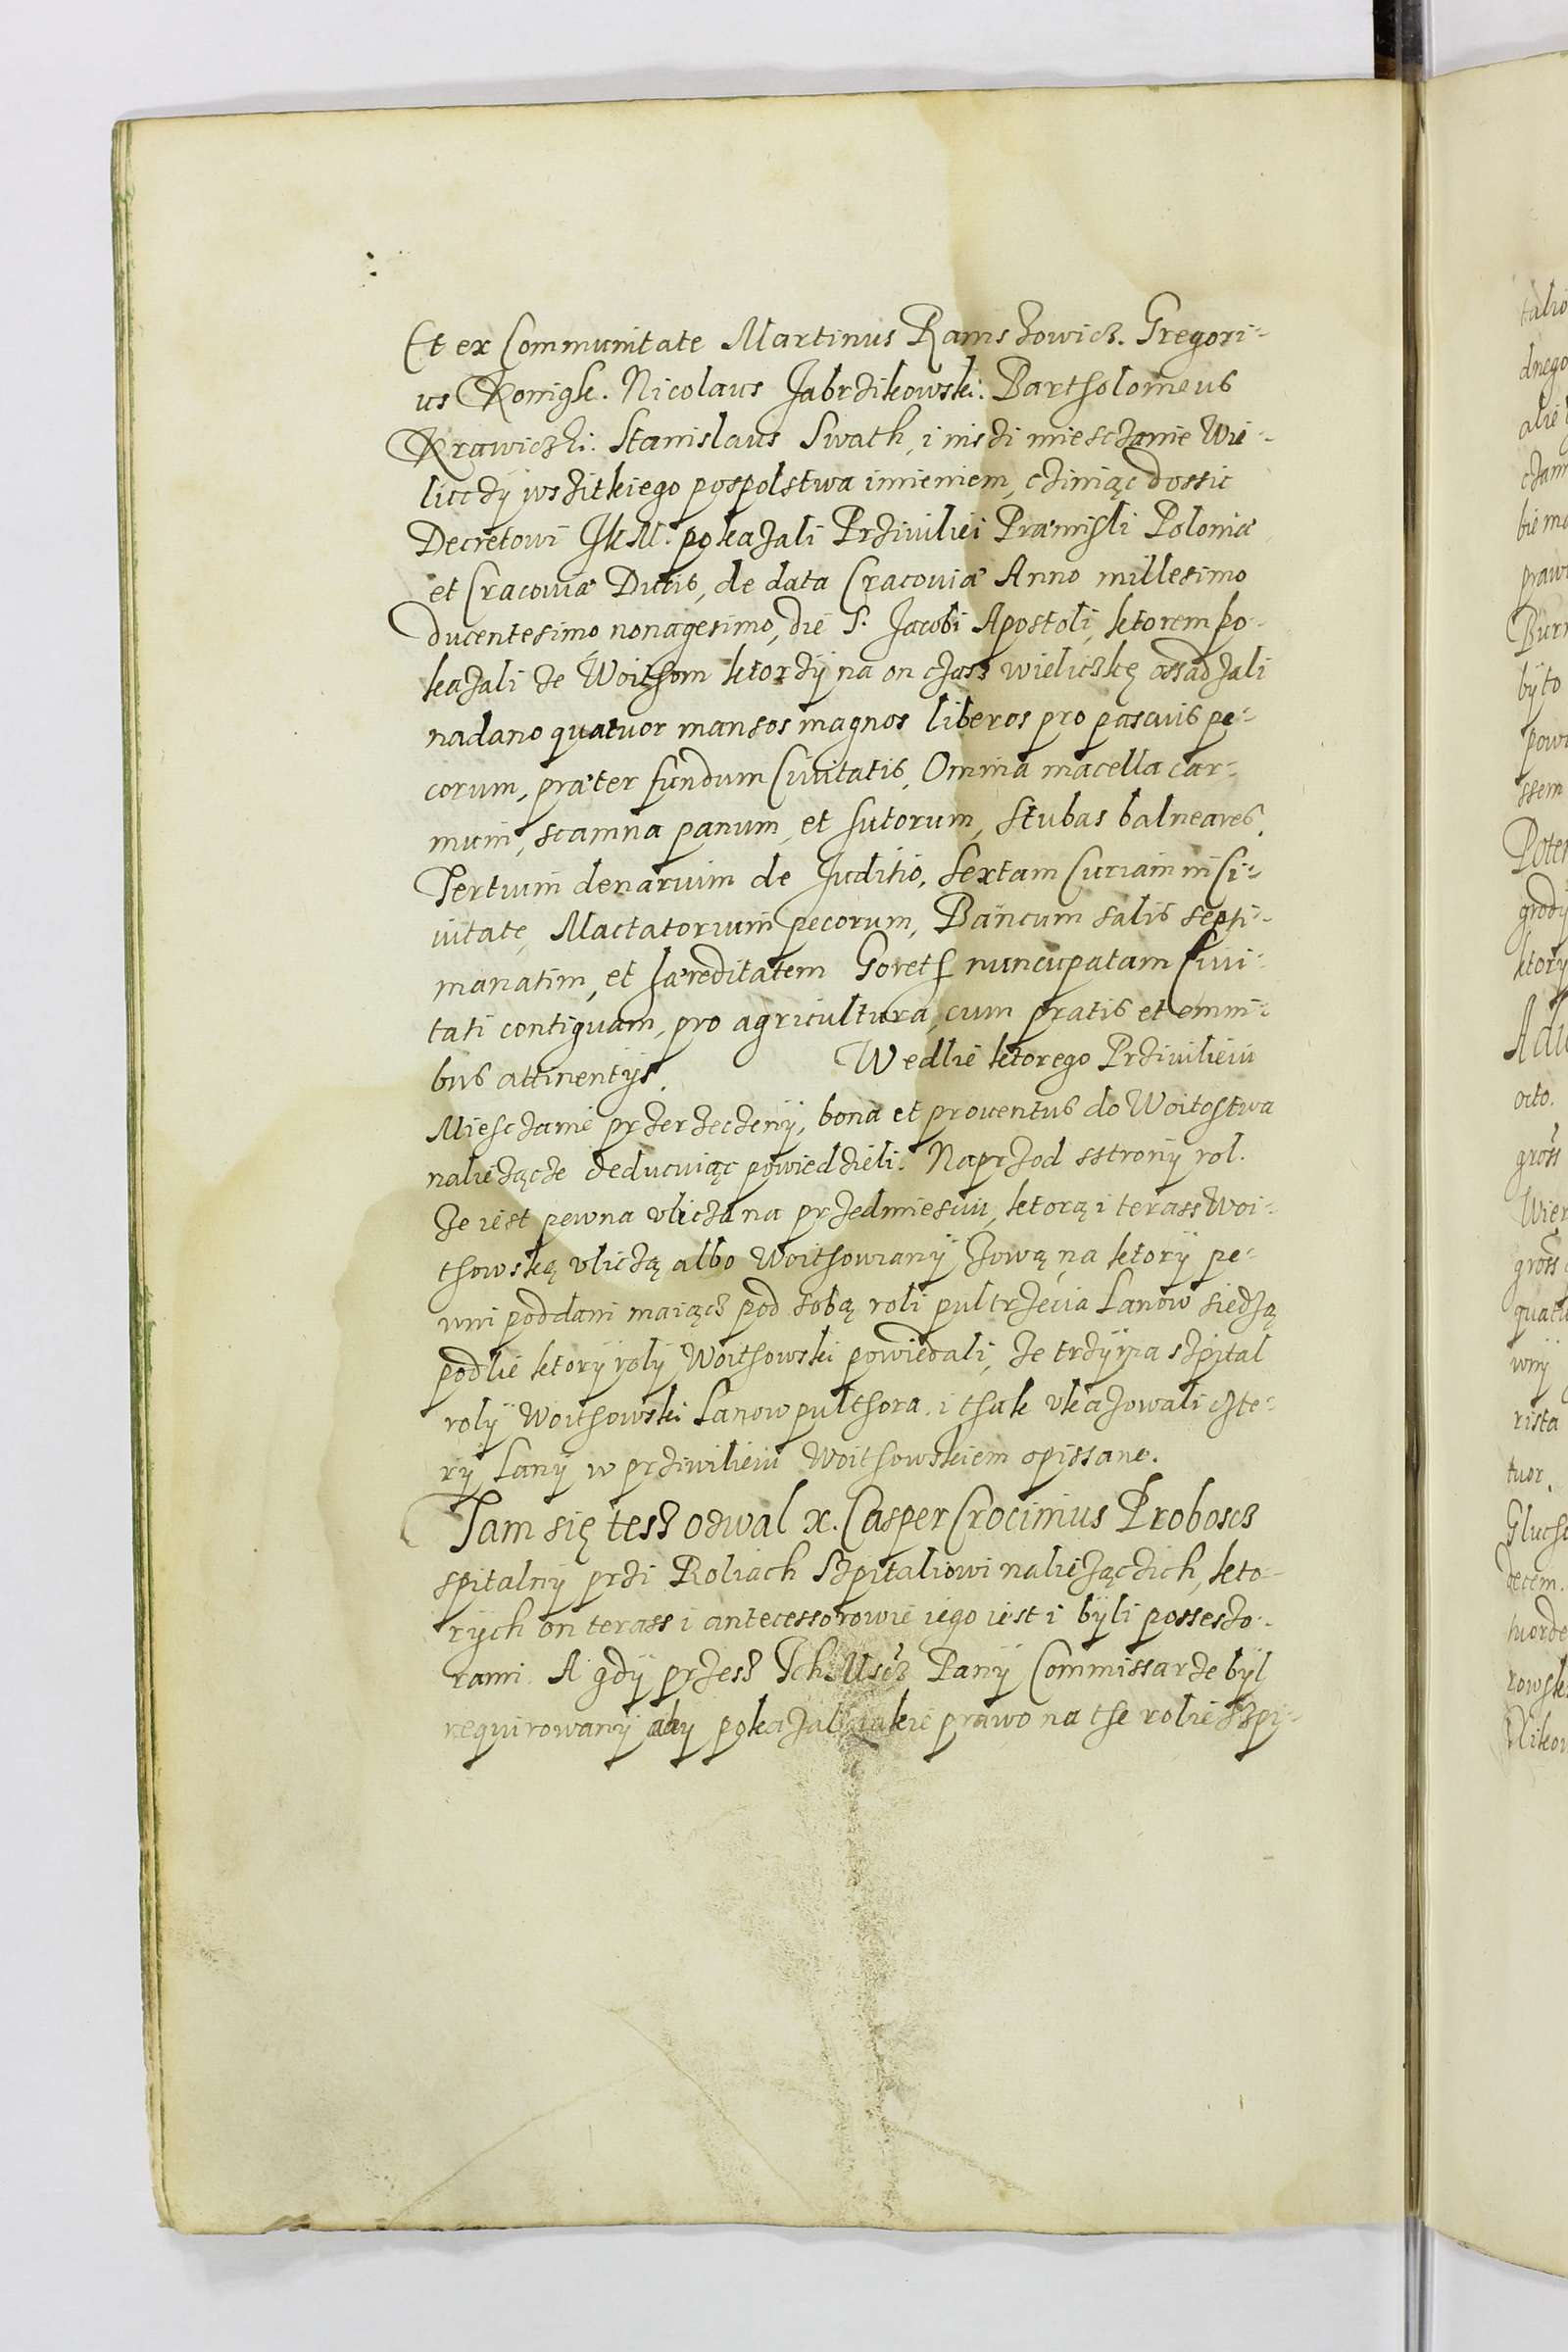 Et ex Communitate Martinus Ramszowicz. Gregori-
us Konigk. Nicolaus Jabrzikowski. Bartholomeus
Krawiczki. Stanislaus Swath, i inszi miesczanie Wie-
liczzÿ wszitkiego pospolstwa imieniem, cziniąc dossic
Decretowi JKM. pokazali Prziviliei Præmisli Poloniæ
et Cracoviæ Ducis, de data Cracoviæ Anno millesimo
ducentesimo nonagesimo, die S. Jacobi Apostoli, ktorem po-
kazali ze Woithom ktorzÿ na on czass wieliczkę ossadzali
nadano quatuor mansos magnos liberos pro pascuis pe-
corum, præter fundum Civitatis, Omnia macella car-
nium, scamna panum, et sutorum, stubas balneares,
Tertium denarium de Juditio, sextam Curiam in Ci-
vitate, Mactatorium pecorum, Bancum salis septi-
manatim, et hæreditatem Goreth nuncupatam Civi-
tati contiguam, pro agricultura, cum pratis et omni-
bus attinentÿs. Wedlie ktorego Prziviliein
Miesczanie przerzeczenÿ, bona et proventus do Woitostwa
należącze deducuiąc powiedzieli. Naprzod sstronÿ rol.
Ze iest pewna ulicza na przedmiesciu, ktorą i terass Woi-
thowską uliczą albo Woithowianÿ zową, na ktorÿ pe-
wni poddani maiącz pod sobą roli pultrzecia Lanow siedzą
podlie ktorÿ rolÿ Woithowski powiedali, ze trzÿma szpital
rolÿ Woithowski Lanow pulthora. i thak ukazowali czte-
rÿ Lanÿ w prziwilieiu Woithowskiem opissane.
Tam się tesz ozwal x. Casper Crocinius Proboscz
spitalnÿ przi Roliach Szpitaliowi należączich, kto-
rÿch on terass i antecessorowie iego iest i bÿli possesso-
rami. A gdÿ przesz Ich Mscz Panÿ Commissarze bÿl
requirowanÿ abÿ pokazal iakie prawo na the rolie Szpi-